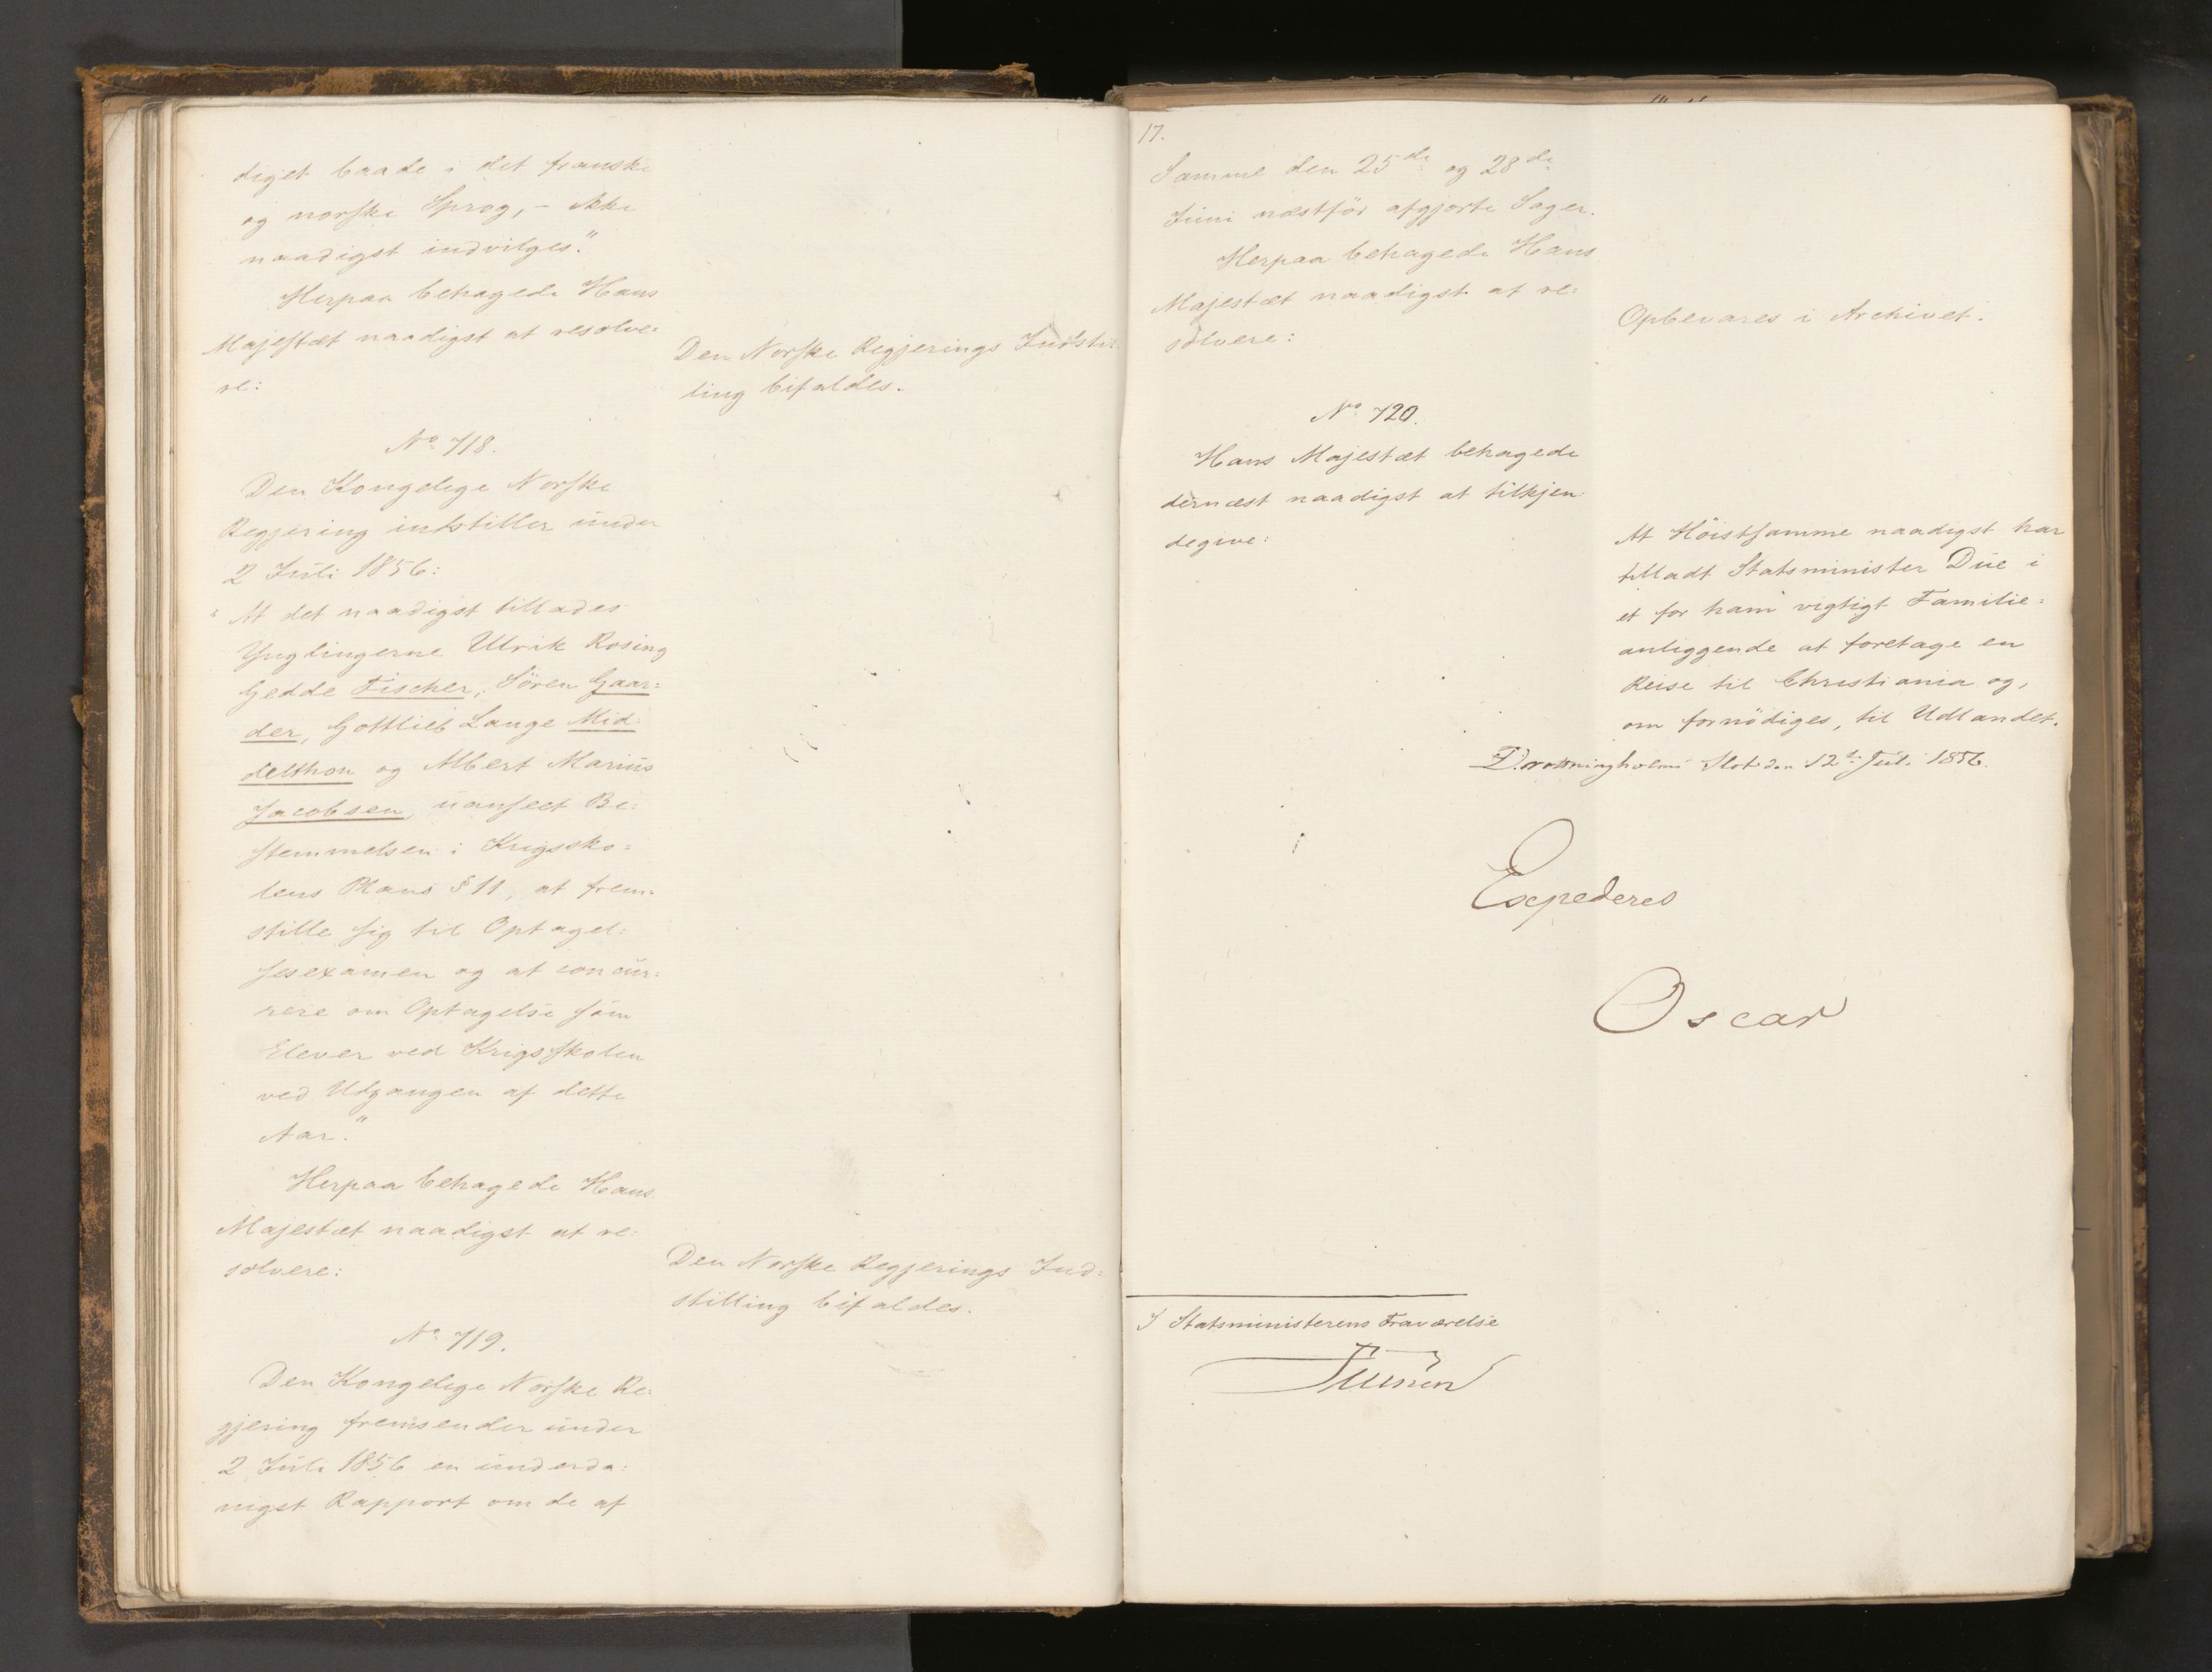 diget baade i det franske
og norske Sprog, - ikke
naadigst indvilges."
Herpaa behagede Hans
Majestæt naadigst at resolve=
re:
Den Norske Regjerings Indstil=
ling bifaldes.
No 718.
Den Kongelige Norske
Regjering indstiller under
2 Juli 1856:
"At det naadigst tillades
Ynglingerne Ulrik Rosing
Gedde Fischer, Sören Gaar=
der, Gottlieb Lange Mid=
delthon og Albert Marius
Jacobsen, uanseet Be=
stemmelsen i Krigssko=
lens Plans § 11, at frem=
stille sig til Optagel=
sesexamen og at concur=
rere om Optagelse som
Elever ved Krigsskolen
ved Udgangen af dette
Aar."
Herpaa behagede Hans
Majestæt naadigst at re=
solvere:
Den Norske Regjerings Ind=
stilling bifaldes.
No 719.
Den Kongelige Norske Re=
gjering fremsender under
2 Juli 1856 en underda=
nigst Rapport om de af
17.
Samme den 25de og 28de
Juni næstför afgjorte Sager.
Herpaa behagede Hans
Majestæt naadigst at re=
solvere:
Opbevares i Archivet.
No 720.
Hans Majestæt behagede
dernæst naadigst at tilkjen=
degive:
At Höistsamme naadigst har
tilladt Statsminister Due i
et for ham vigtigt Familie=
anliggende at foretage en
Reise til Christiania og,
om fornödiges, til Udlandet.
Drottningholms Slot den 12te Juli 1856.
Expederes
Oscar
I Statsministerens Fraværelse